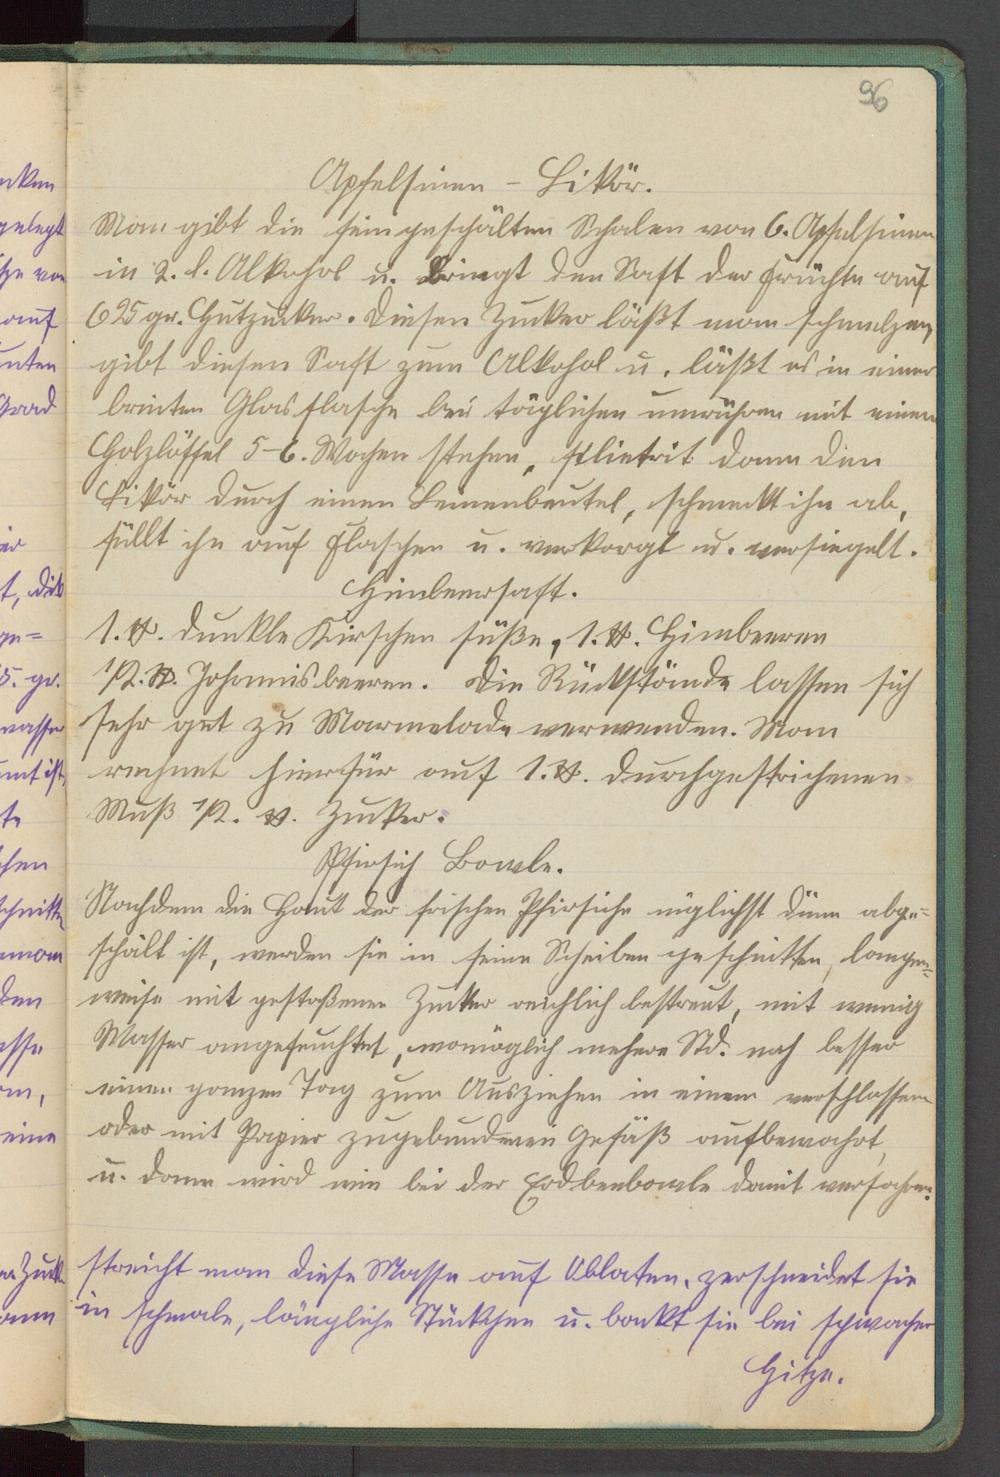 96
Apfelsinen - Likör.
Man gibt die feingeschälten Schalen von 6. Apfelsinen
in 2. l. Alkohol u. bringt den Saft der Früchte auf
625 gr. Hutzucker. Diesen Zucker läßt man schmelzen,
gibt diesen Saft zum Alkohol u. läßt es in einer
breiten Glasflasche bei täglichen umrühren mit einem
Holzlöffel 5-6. Wochen stehen, filtrirt dann den
Likör durch einen Leinenbeutel, schmeckt ihn ab,
füllt ihn auf Flaschen u. verkorgt u. versiegelt.
Himbeersaft.
1. ℔. dunkle Kirschen süße, 1. ℔. Himbeeren
1/2. ℔. Johannisbeeren. Die Rückstände lassen sich
sehr gut zu Marmelade verwenden. Man
rechnet hierfür auf 1. ℔. durchgestrichenen
Muß 1/2. ℔. Zucker.
Pfirsich Bowle.
Nachdem die Haut der frischen Pfirsiche möglichst dünn abge=
schält ist, werden sie in feine Scheiben geschnitten, lagen=
weise mit gestoßenen Zucker reichlich bestreut, mit wenig
Wasser angefeuchtet, womöglich mehere Std. noch besser
einen ganzen Tag zum Ausziehen in einem verschlossen
oder mit Papier zugebundenen Gefäß aufbewahrt,
u. dann wird wie bei der Erdbeerbowle damit verfahren.
streicht man diese Masse auf Oblaten, zerschneidet sie
in schmale, längliche Stückchen u. backt sie bei schwacher
Hitze.